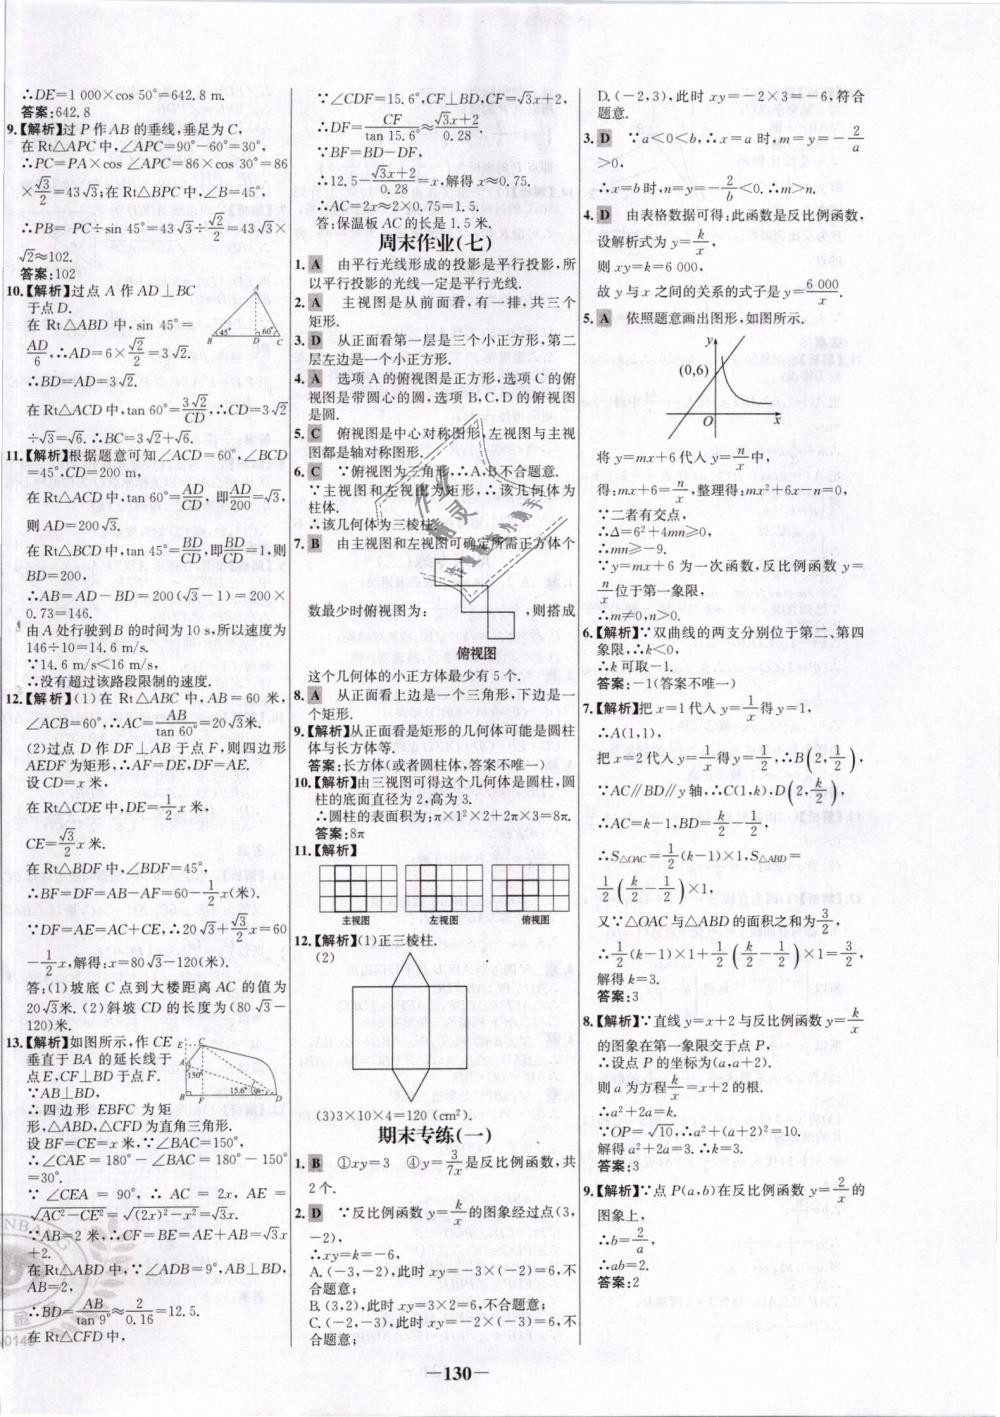 ∴DE=1 000×cos 50°=642.8 m.
答案:642.8
9.【解析】过 P 作 AB 的垂线,垂足为 C,
在 Rt△APC 中,∠APC=90°-60°=30°,
∴PC=PA×cos ∠APC=86×cos 30°=86
×√3/2=43√3;在 Rt△BPC 中,∠B=45°,
∴PB= PC÷sin 45°=43√3÷√2/2=43√3×
√2≈102.
答案:102
10.【解析】过点 A 作 AD⊥BC
于点 D.
在 Rt△ABD 中,sin 45°=
AD/6,∴AD=6×√2/2=3√2.
∴BD=AD=3√2.
在 Rt△ACD 中,tan 60°=3√2/CD,∴CD=3√2
÷√3=√6.∴BC=3√2+√6.
11.【解析】根据题意可知∠ACD=60°,∠BCD
=45°,CD=200 m,
在 Rt△ACD 中,tan 60°=AD/CD, 即AD/200=√3,
则 AD=200√3.
在 Rt△BCD 中,tan 45°=BD/CD,即BD/CD=1,则
BD=200,
∴AB=AD-BD=200(√3-1)=200×
0.73=146.
由 A 处行驶到 B 的时间为 10 s,所以速度为
146÷10=14.6 m/s.
∵14.6 m/s<16 m/s,
∴没有超过该路段限制的速度.
12.【解析】(1)在 Rt△ABC 中,AB=60 米,
∠ACB=60°,∴AC=AB/tan 60°=20√3米.
(2)过点 D 作 DF⊥AB 于点 F,则四边形
AEDF 为矩形,∴AF=DE,DF=AE.
设 CD=x 米,
在 Rt△CDE 中,DE=1/2x 米,
CE=√3/2x 米.
在 Rt△BDF 中,∠BDF=45°,
∴BF=DF=AB-AF=60-1/2x(米).
∵DF=AE=AC+CE,∴20√3+√3/2x=60
-1/2x,解得:x=80√3-120(米).
答:(1)坡底 C 点到大楼距离 AC 的值为
20√3米.(2)斜坡 CD 的长度为(80√3-
120)米.
13.【解析】如图所示,作 CE
垂直于 BA 的延长线于
点 E,CF⊥BD 于点 F.
∵AB⊥BD,
∴四边形 EBFC 为矩
形,△ABD,△CFD 为直角三角形.
设 BF=CE=x 米,∵∠BAC=150°,
∴∠CAE=180°-∠BAC=180°-150°
=30°.
∵∠CEA=90°,∴AC=2x,AE=
√(AC²-CE²)=√((2x)²-x²)=√3x.
∵AB=2 米,∴CF=BE=AE+AB=√3x
+2.
在 Rt△ABD 中,∵∠ADB=9°,AB⊥BD,
AB=2,
∴BD=AB/tan 9°≈2/0.16=12.5.
在 Rt△CFD 中,
∵∠CDF=15.6°,CF⊥BD,CF=√3x+2,
∴DF=CF/tan 15.6°≈(√3x+2)/0.28.
∵BF=BD-DF,
∴12.5-(√3x+2)/0.28=x,解得 x≈0.75.
∴AC=2x≈2×0.75=1.5.
答:保温板 AC 的长是 1.5 米.
周末作业(七)
1. A 由平行光线形成的投影是平行投影,所
以平行投影的光线一定是平行光线.
2. A 主视图是从前面看,有一排,共三个
矩形.
3. D 从正面看第一层是三个小正方形,第二
层左边是一个小正方形.
4. A 选项 A 的俯视图是正方形,选项 C 的俯
视图是带圆心的圆,选项 B,C,D 的俯视图
是圆.
5. C 俯视图是中心对称图形,左视图与主视
图都是轴对称图形.
6. C ∵俯视图为三角形,∴A,B 不合题意.
∵主视图和左视图为矩形,∴该几何体为
柱体.
∴该几何体为三棱柱.
7. B 由主视图和左视图可确定所需正方体个
数最少时俯视图为: ,则搭成
俯视图
这个几何体的小正方体最少有 5 个.
8. A 从正面看上边是一个三角形,下边是一
个矩形.
9.【解析】从正面看是矩形的几何体可能是圆柱
体与长方体等.
答案:长方体(或者圆柱体,答案不唯一)
10.【解析】由三视图可得这个几何体是圆柱,圆
柱的底面直径为 2,高为 3.
∴圆柱的表面积为:π×1²×2+2π×3=8π.
答案:8π
11.【解析】
主视图 左视图 俯视图
12.【解析】(1)正三棱柱.
(2)
(3)3×10×4=120 (cm²).
期末专练(一)
1. B ①xy=3 ④y=3/7x是反比例函数,共
2个.
2. D ∵反比例函数 y=k/x的图象经过点(3,
-2),
∴xy=k=-6,
A.(-3,-2),此时 xy=-3×(-2)=6,不
合题意;
B.(3,2),此时 xy=3×2=6,不合题意;
C.(-2,-3),此时 xy=-2×(-3)=6,不
合题意;
D.(-2,3),此时 xy=-2×3=-6,符合
题意.
3. D ∵a<0<b,∴x=a 时,m=y=-2/a
>0,
∴x=b 时,n=y=-2/b<0.∴m>n.
4. D 由表格数据可得:此函数是反比例函数,
设解析式为 y=k/x,
则 xy=k=6 000,
故 y 与 x 之间的关系的式子是 y=6 000/x.
5. A 依照题意画出图形,如图所示.
y
(0,6)
O x
将 y=mx+6 代入 y=n/x中,
得:mx+6=n/x,整理得:mx²+6x-n=0,
∵二者有交点,
∴Δ=6²+4mn≥0,
∴mn≥-9.
∵y=mx+6 为一次函数,反比例函数 y=
n/x位于第一象限,
∴m≠0,n>0.
6.【解析】∵双曲线的两支分别位于第二、第四
象限,∴k<0,
∴k 可取-1.
答案:-1(答案不唯一)
7.【解析】把 x=1 代入 y=1/x得 y=1,
∴A(1,1),
把 x=2 代入 y=1/x得 y=1/2,∴B(2,1/2),
∵AC∥BD∥y 轴,∴C(1,k),D(2,k/2),
∴AC=k-1,BD=k/2-1/2,
∴S△OAC=1/2(k-1)×1,S△ABD=
1/2(k/2-1/2)×1,
又∵△OAC 与△ABD 的面积之和为3/2,
∴1/2(k-1)×1+1/2(k/2-1/2)×1=3/2,
解得 k=3.
答案:3
8.【解析】∵直线 y=x+2 与反比例函数 y=k/x
的图象在第一象限交于点 P,
∴设点 P 的坐标为(a,a+2).
则 a 为方程k/x=x+2 的根.
∴a²+2a=k.
∵OP=√10,∴a²+(a+2)²=10,
解得 a²+2a=3.∴k=3.
答案:3
9.【解析】∵点 P(a,b)在反比例函数 y=2/x的
图象上,
∴b=2/a,
∴ab=2.
答案:2
—130—